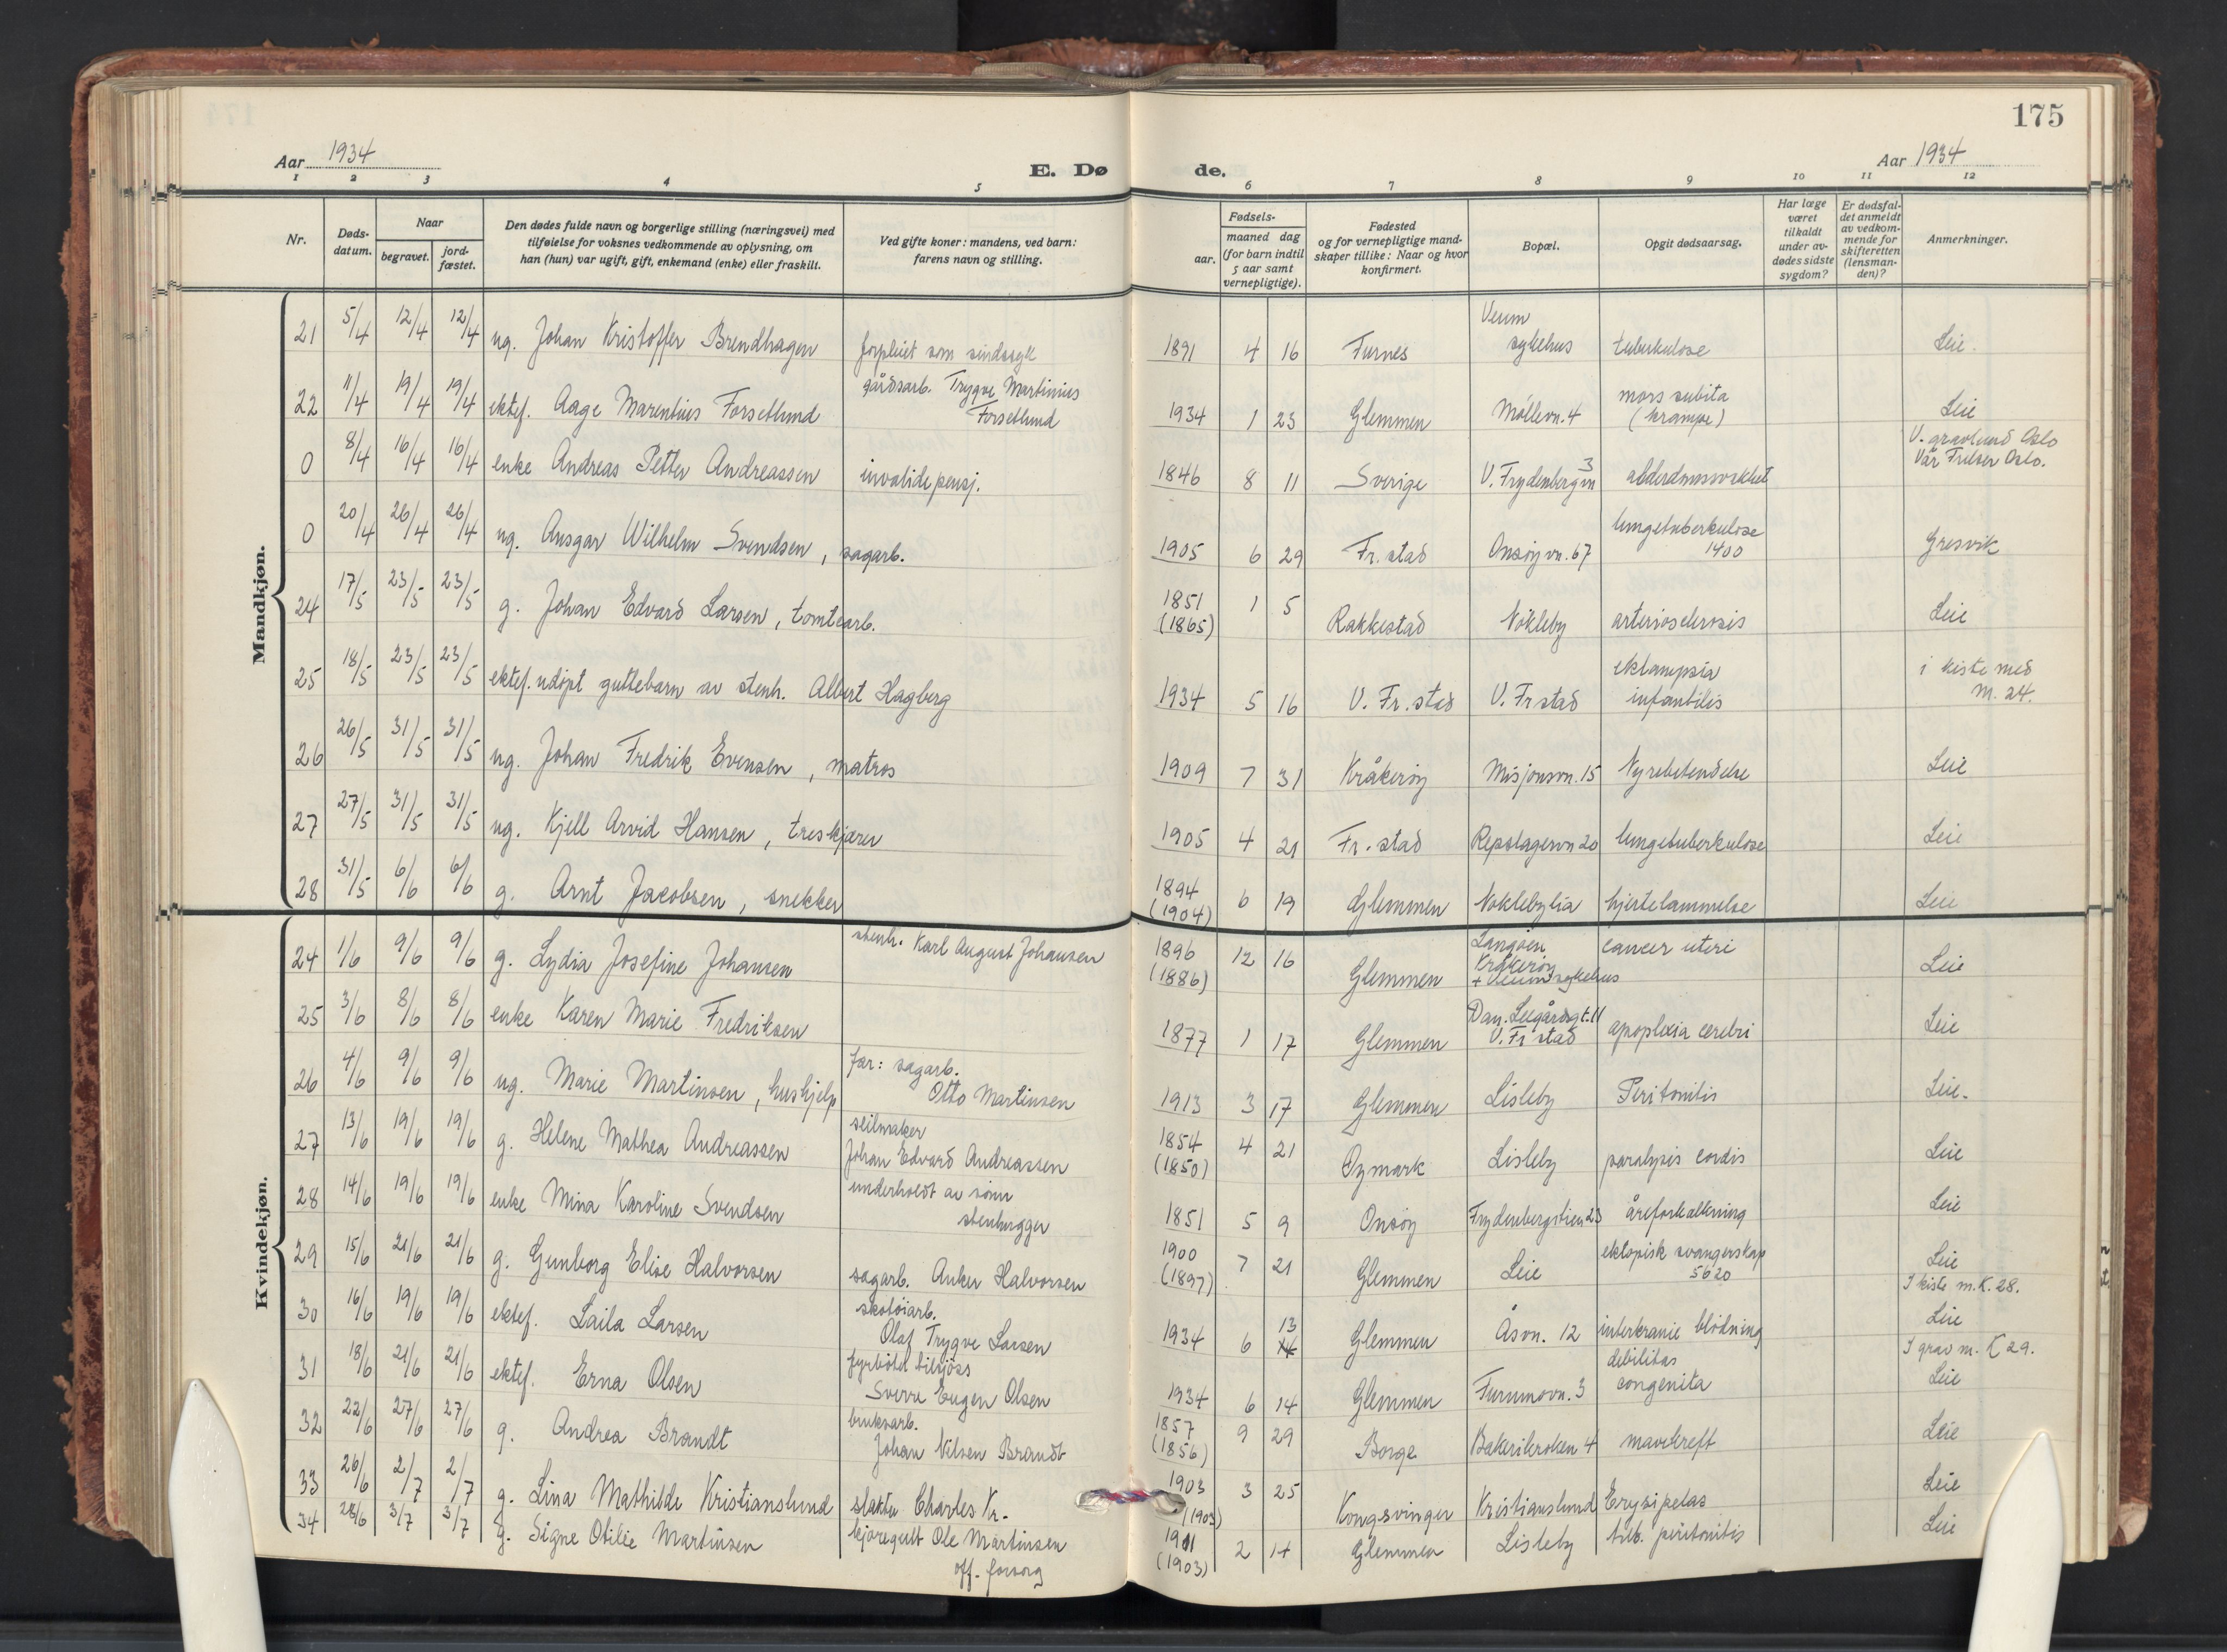 175
Aar 1934
E. Dø
de.
Aar 1934
1 2 3 4 5 6 7 8 9 10 11 12
Nr.
Døds-
datum.
Naar
begravet.
jord-
fæstet.
Den dødes fulde navn og borgerlige stilling (næringsvei) med
tilføielse for voksnes vedkommende av oplysning, om
han (hun) var ugift, gift, enkemand (enke) eller fraskilt.
Ved gifte koner: mandens, ved barn:
farens navn og stilling.
Fødsels-
aar.
maaned dag
(for barn indtil
5 aar samt
vernepligtige).
Fødested
og for vernepligtige mand-
skaper tillike: Naar og hvor
konfirmert.
Bopæl.
Opgit dødsaarsag.
Har læge
været
tilkaldt
under av-
dødes sidste
sygdom?
Er dødsfal-
det anmeldt
av vedkom-
mende for
skifteretten
(lensman-
den)?
Anmerkninger.
Mandkjøn.
21 5/4 12/4 12/4 ug. Johan Kristoffer Brendhagen forpleiet som sindssyk 1891 4 16 Furnes Veum sykehus tuberkulose Leie.
22 11/4 19/4 19/4 ektef. Aage Marentius Forsetlund gårdsarb. Trygve Martinius Forsetlund 1934 1 23 Glemmen Møllevn. 4 mors subita (krampe) Leie
0 8/4 16/4 16/4 enke Andreas Petter Andreassen invalidepensj. 1846 8 11 Sverige V. Frydenbergvn 3 alderdomssvakhet V. gravlund Oslo Vår Frelser Oslo.
0 20/4 26/4 26/4 ug. Ansgar Wilhelm Svendsen, sagarb. 1905 6 29 Fr. stad Onsøyvn. 67 lungetuberkulose 1400 Gresvik
24 17/5 23/5 23/5 g. Johan Edvard Larsen, tomtearb. 1851 (1865) 1 5 Rakkestad Nøkleby arteriosclerosis Leie
25 18/5 23/5 23/5 ektef. udøpt guttebarn av stenh. Albert Hagberg 1934 5 16 V. Fr. stad V. Fr stad eklampsia infantilis i kiste med m. 24.
26 26/5 31/5 31/5 ug. Johan Fredrik Evensen, matros 1909 7 31 Kråkerøy Misjonsvn. 15 Nyrebetendelse Leie
27 27/5 31/5 31/5 ug. Kjell Arvid Hansen, treskjærer 1905 4 21 Fr. stad Repslagervn 20 lungetuberkulose Leie
28 31/5 6/6 6/6 g. Arnt Jacobsen, snekker 1894 (1904) 6 19 Glemmen Nøklebylia hjertelammelse Leie
Kvindekjøn.
24 1/6 9/6 9/6 g. Lydia Josefine Johansen stenh. Karl August Johansen 1896 (1886) 12 16 Glemmen Langøen Kråkerøy + Veum sykehus cancer uteri Leie
25 3/6 8/6 8/6 enke Karen Marie Fredriksen 1877 1 17 Glemmen Dan. Leegårdsgt. 11 V. Fr stad apoplexia cerebri Leie
26 4/6 9/6 9/6 ug. Marie Martinsen, hushjelp far: sagarb. Otto Martinsen 1913 3 17 Glemmen Lisleby Peritonitis Leie.
27 13/6 19/6 19/6 g. Helene Mathea Andreassen seilmaker Johan Edvard Andreassen 1854 (1850) 4 21 Øymark Lisleby paralysis cordis Leie
28 14/6 19/6 19/6 enke Mina Karoline Svendsen underholdt av sønn stenhugger 1851 5 9 Onsøy Frydenbergstien 23 åreforkalkning Leie
29 15/6 21/6 21/6 g. Gunborg Elise Halvorsen sagarb. Anker Halvorsen 1900 (1897) 7 21 Glemmen Leie ektopisk svangerskap 5620 Leie
30 16/6 19/6 19/6 ektef. Laila Larsen skotøiarb. Olaf Trygve Larsen 1934 6 13 14 Glemmen Åsvn. 12 interkranie blødning I kiste m. K. 28. Leie
31 18/6 21/6 21/6 ektef. Erna Olsen fyrbøter tilsjøss Sverre Eugen Olsen 1934 6 14 Glemmen Furumovn. 3 debilitas congenita I grav m. K 29. Leie
32 22/6 27/6 27/6 g. Andrea Brandt bruksarb. Johan Nilsen Brandt 1857 (1856) 9 29 Borge Bakerikroken 4 mavekreft Leie
33 26/6 2/7 2/7 g. Lina Mathilde Kristianslund slakter Charles Kr. 1903 (1903) 3 25 Kongsvinger Kristianslund Erysipelas Leie
34 28/6 3/7 3/7 g. Signe Otilie Martinsen kjøregutt Ole Martinsen off. forsorg 1911 (1903) 2 14 Glemmen Lisleby tub. peritonitis Leie